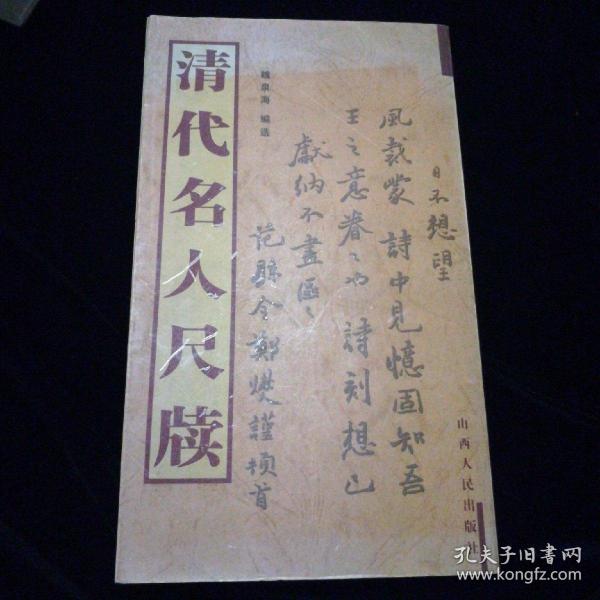 清代名人尺牍
魏泉海 编选
日不想望
風裁蒙詩中見憶固知吾
王之意眷々也詩刻想已
獻納不盡區々
范縣令鄭燮謹頓首
山西人民出版社
孔夫子旧书网
www.kongfz.com